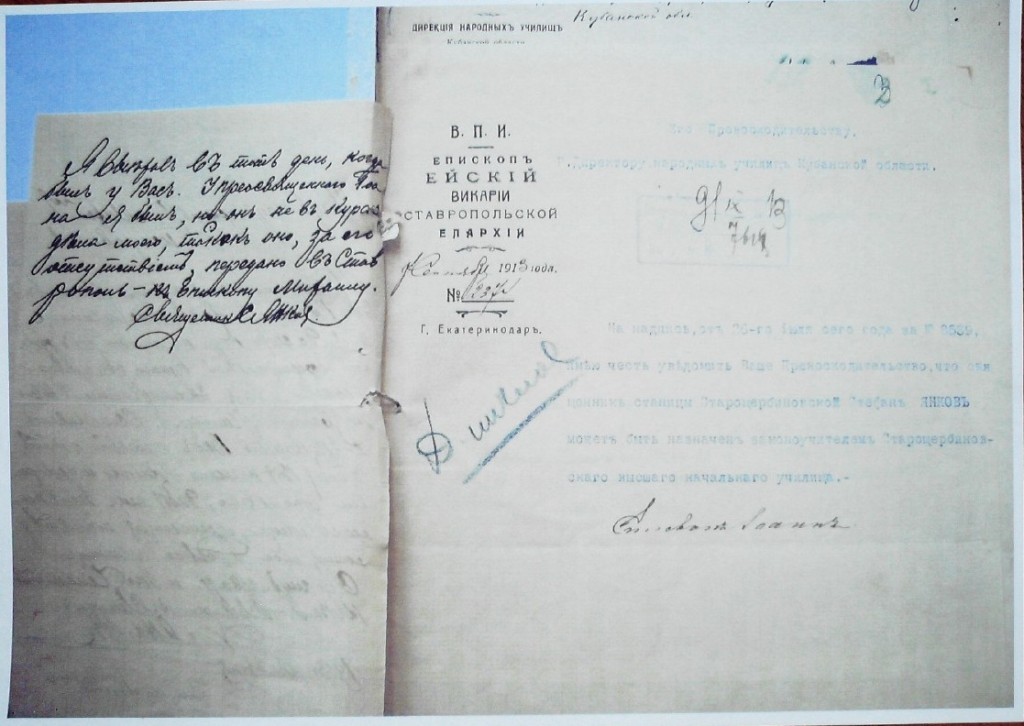 Я выѣхалъ въ тотъ день, когда
былъ у Васъ. У преосвященного Іоан
на я былъ, но онъ не въ курсѣ
дѣла моего, такъ какъ оно, за его
отсутствіемъ, передано въ Став
рополь - къ Епископу Михаилу.
Священникъ С. Янковъ
ДИРЕКЦІЯ НАРОДНЫХЪ УЧИЛИЩЪ
Кубанской области
Кубанской обл.
В. П. И.
ЕПИСКОПЪ
ЕЙСКІЙ
ВИКАРІЙ
СТАВРОПОЛЬСКОЙ
ЕПАРХІИ
Сентября 1913 года.
№
Г. Екатеринодаръ.
Его Превосходительству,
Г. Директору народныхъ училищъ Кубанской области.
9/IX 13
На надпись, отъ 26-го Іюля сего года за № 2539,
имѣю честь увѣдомить Ваше Превосходительство, что свя
щенникъ станицы Старощербиновской Стефанъ ЯНКОВЪ
можетъ быть назначенъ законоучителемъ Старощербинов-
скаго высшаго начальнаго училища.-
Епископъ Іоаннъ